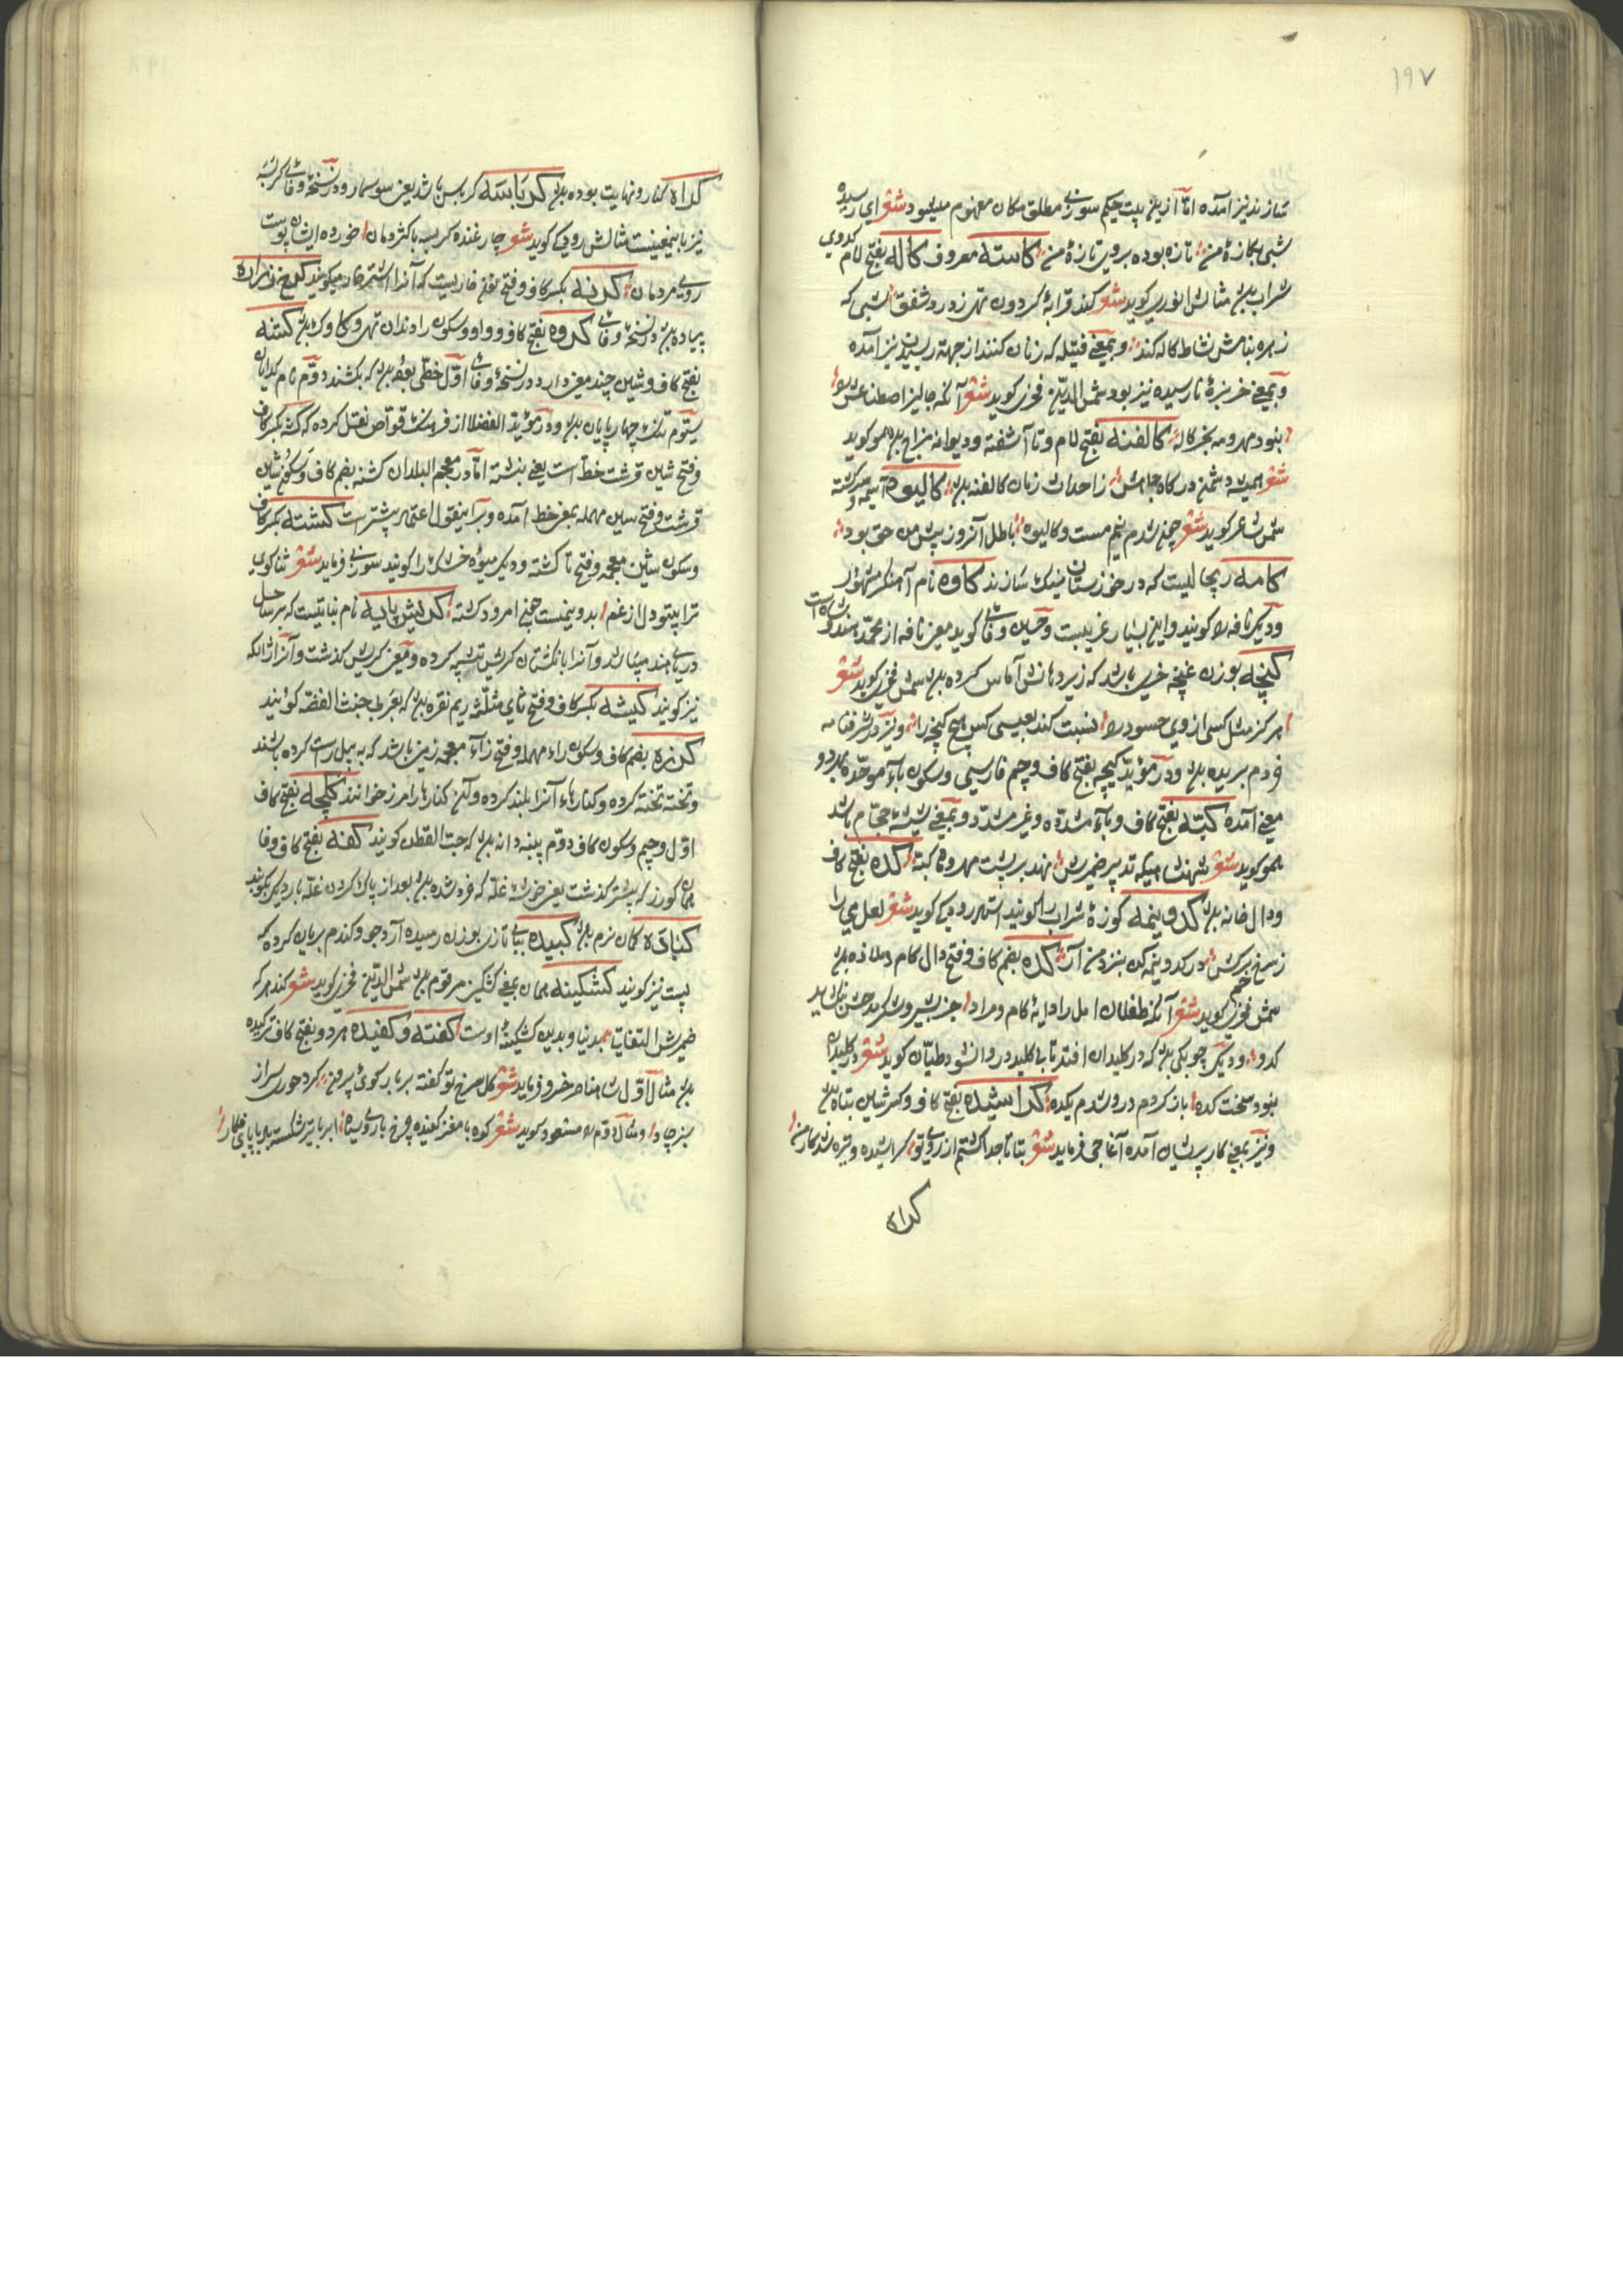 ۱۹۷
سازند نیز آمده اما ازین بیت حکیم سوزنی مطلق مکان مفهوم میشود شعر ای رسیده
شبی بکازهٔ من تازه بوده بروی تازهٔ من کاسته معروف کاله بفتح لام کدوی
شراب بود مثالش انوری کوید شعر کند قرابهٔ کردون تهی زدرد شفق شبی که
زهره بنامش نشاط کاله کند وبمعنی فتیله که زنان کنند از جهة ریسیدن نیز آمده
وبمعنی خربزهٔ نارسیده نیز بود شمس الدین فخری کوید شعر آنکه جالیز اصطناعش را
نبود مهر ومه بجز کاله کالفته بفتح لام وتا آشفته ودیوانه مزاج بود هموکوید
شعر همیشه دشمن درکاه جاهش زاحداث زمان کالفته بود کالیوه آسیمه وسرکشته
شمس شاعر کوید شعر چون شدم نیم مست وکالیوه باطل آنروز پیش من حق بود
کامه ریچالیست که در خوزستان نیک سازند کاوه نام آهنکر مشهور
ودیکر نافه را کویند واین بسیار غریبست وحسین وفائی کوید معنی نافه از محمد هندوشاه است
کبچه بوزن غنچه خری باشد که زیر دهانش آماس کرده بود شمس فخری کوید شعر
هرکز مثل کسی ازوی حسود را نسبت کند بعیسی کس هیچ کبچه را ونیز در شرفنامه
خر دم بریده بود ودر مؤید کبچه بفتح کاف وجیم فارسی وسکون باء موحده بهردو
معنی آمده کبته بفتح کاف وباء مشدده وغیر مشدد وبمعنی شیشهٔ حجام باشد
هموکوید شعر شهنشاهیکه تدبیر ضمیرش نهد بر پشت مهر وماه کبته کده بفتح کاف
ودال خانه بود کدو نیمه کوزهٔ شراب را کویند استاد رودکی کوید شعر لعل می را
زسرخ خم برکش در کدو نیمه کن بنزد من آر کده بضم کاف وفتح دال کام وملاذه بود
شمس فخری کوید شعر آنکه طفلان امل را دایهٔ کام ومراد جز بشیر وشکر مدحش نمالید
کدو ودیکر چوبکی بود که در کلیدان افتد تا بی کلید در وا نشود طیان کوید شعر در کلیدان
نبود سخت کده باز کردم در وشدم بکده کراشیده بفتح کاف وکسر شین تباه بود
ونیز بمعنی کار پریشان آمده آغاجی فرماید شعر بتا تا جدا کشتم از روی تو کراشیده وتیره شد کار من
کراه
کراه کنار ونهایت بوده بود کرباسه کرباس باشد یعنی سوسمار ودر نسخهٔ وفائی کربشه
نیز باینمعنیست مثالش رودکی کوید شعر چار غنده کربسه با کژدمان خورده ایشان پوست
روی مردمان کرنه بکسر کاف وفتح نون خاریست که آنرا اشترخار میکویند کرخ نزار اره
پیاده بود در نسخهٔ وفائی کروه بفتح کاف وواو وسکون را دندان تهی وکاوک بود کشته
بفتح کاف وشین چند معنی دارد در نسخهٔ وفائی اول خطی بود که بکشند دوم نام کدایان
سیوم تنک چهارپایان بود ودر مؤید الفضلا از فرهنک قواص نقل کرده که کشه بکسر کاف
وفتح شین قرشت خط است یعنی نبشته اما در معجم البلدان کشنه بضم کاف وسکون شین
قرشت وفتح سین مهمله بمعنی خط آمده وبراینقول اعتماد بیشترست کشته بکسر کاف
وسکون شین معجمه وفتح تا کشته ودیکر میوهٔ خشک را کویند سوزنی فرماید شعر ثنا کوی
ترا پیتو دل از غم بدو نیمست چون امرود کشته کریش پایه نام نباتیست که بر ساحل
دریای هند میباشد وآنرا بانکشتان کریش تشبیه کرده ومعنی کریش کذشت وآنرا آزانکه
نیز کویند کیشه بکسر کاف وفتح ثای مثلثه ریم نقره بود که بعربی خبث الفضه کویند
کرزه بضم کاف وسکون راء مهمله وفتح زاء معجمه زمین باشد که به بیل راست کرده باشند
وتخته تخته کرده وکنارهاء آنرا بلند کرده وآن کنارها را مرز خوانند ککچه بفتح کاف
اول وجیم وسکون کاف دوم پنبه دانه بود که حب القطن کویند کفه بفتح کاف وفا
همان کوزر که پیشتر کذشت یعنی خوشهٔ غله که خرد شده بود وبعد از پاک کردن غله بار دیکر بکوبند
کباده کمان نرم بود کبیده ببای تازی بوزن رسیده آرد جو وکندم بریان کرده که
پست نیز کویند کشکینه همان بمعنی کشکین مرقوم بود شمس الدین فخری کوید شعر کند هرکه
ضمیرش التفاتیا بدنیا وبدین کشکینهٔ اوست کفته وکفیده هردو بفتح کاف ترکیده
بود مثال اول شاه ناصر خسرو فرماید شعر کل سرخ تو کفته بر بار کوئی برون کرد حوری سر از
سبز چادر ومثال دوم را مسعود کوید شعر کوه با مغز کفیده چرخ با روی سیاه ابر با تیر شکسته باد با پای فکار